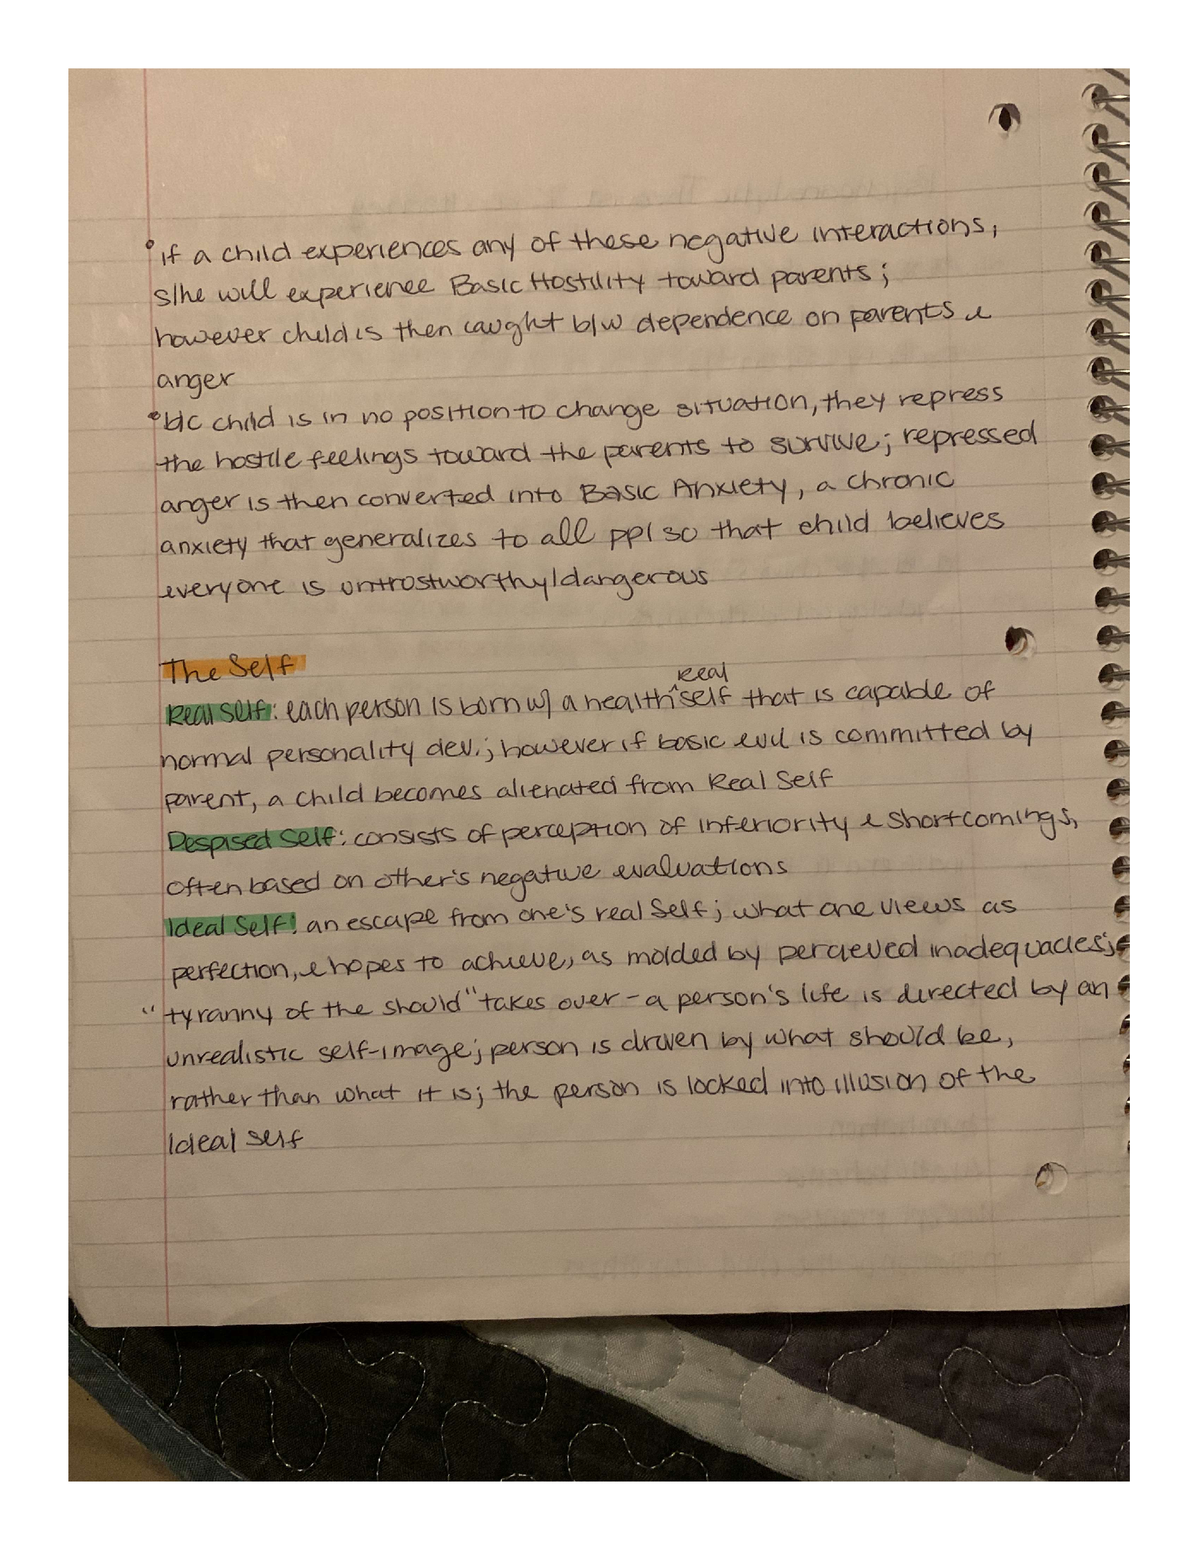 ° if a child experiences any of these negative interactions,
s/he will experience Basic Hostility toward parents;
however child is then caught b/w dependence on parents &
anger
° b/c child is in no position to change situation, they repress
the hostile feelings toward the parents to survive; repressed
anger is then converted into Basic Anxiety, a chronic
anxiety that generalizes to all ppl so that child believes
everyone is untrostworthy/dangerous
The Self
real
Real Self: each person is born w/ a health ^ self that is capable of
normal personality dev.; however if basic evil is committed by
parent, a child becomes alienated from Real Self
Despised Self: consists of perception of inferiority & shortcomings,
often based on other's negative evaluations
Ideal Self: an escape from one's real self; what one views as
perfection, & hopes to achieve, as molded by percieved inadequacies;
"tyranny of the should" takes over - a person's life is directed by an
unrealistic self-image; person is driven by what should be,
rather than what it is; the person is locked into illusion of the
Ideal Self